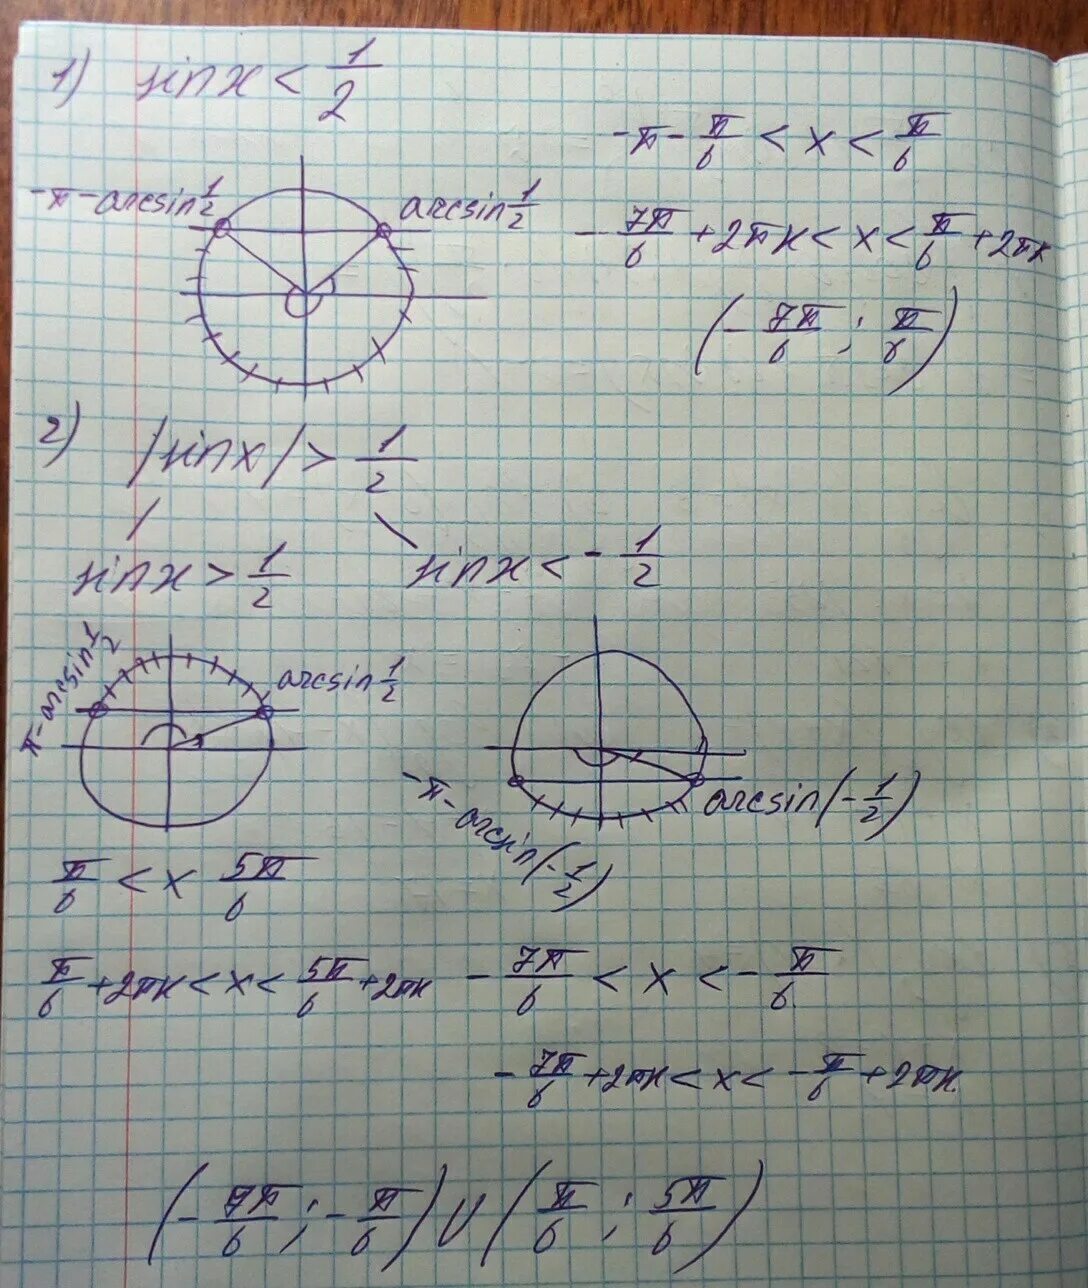 1) sinx < 1/2
-π - π/6 < x < π/6
-π - arcsin 1/2
arcsin 1/2
- 7π/6 + 2πk < x < π/6 + 2πk
(- 7π/6 ; π/6)
2) |sinx| > 1/2
sinx > 1/2
sinx < - 1/2
π - arcsin 1/2
arcsin 1/2
-π - arcsin(- 1/2)
arcsin(- 1/2)
π/6 < x 5π/6
π/6 + 2πk < x < 5π/6 + 2πk
- 7π/6 < x < - π/6
- 7π/6 + 2πk < x < - π/6 + 2πk
(- 7π/6 ; - π/6) ∪ (π/6 ; 5π/6)